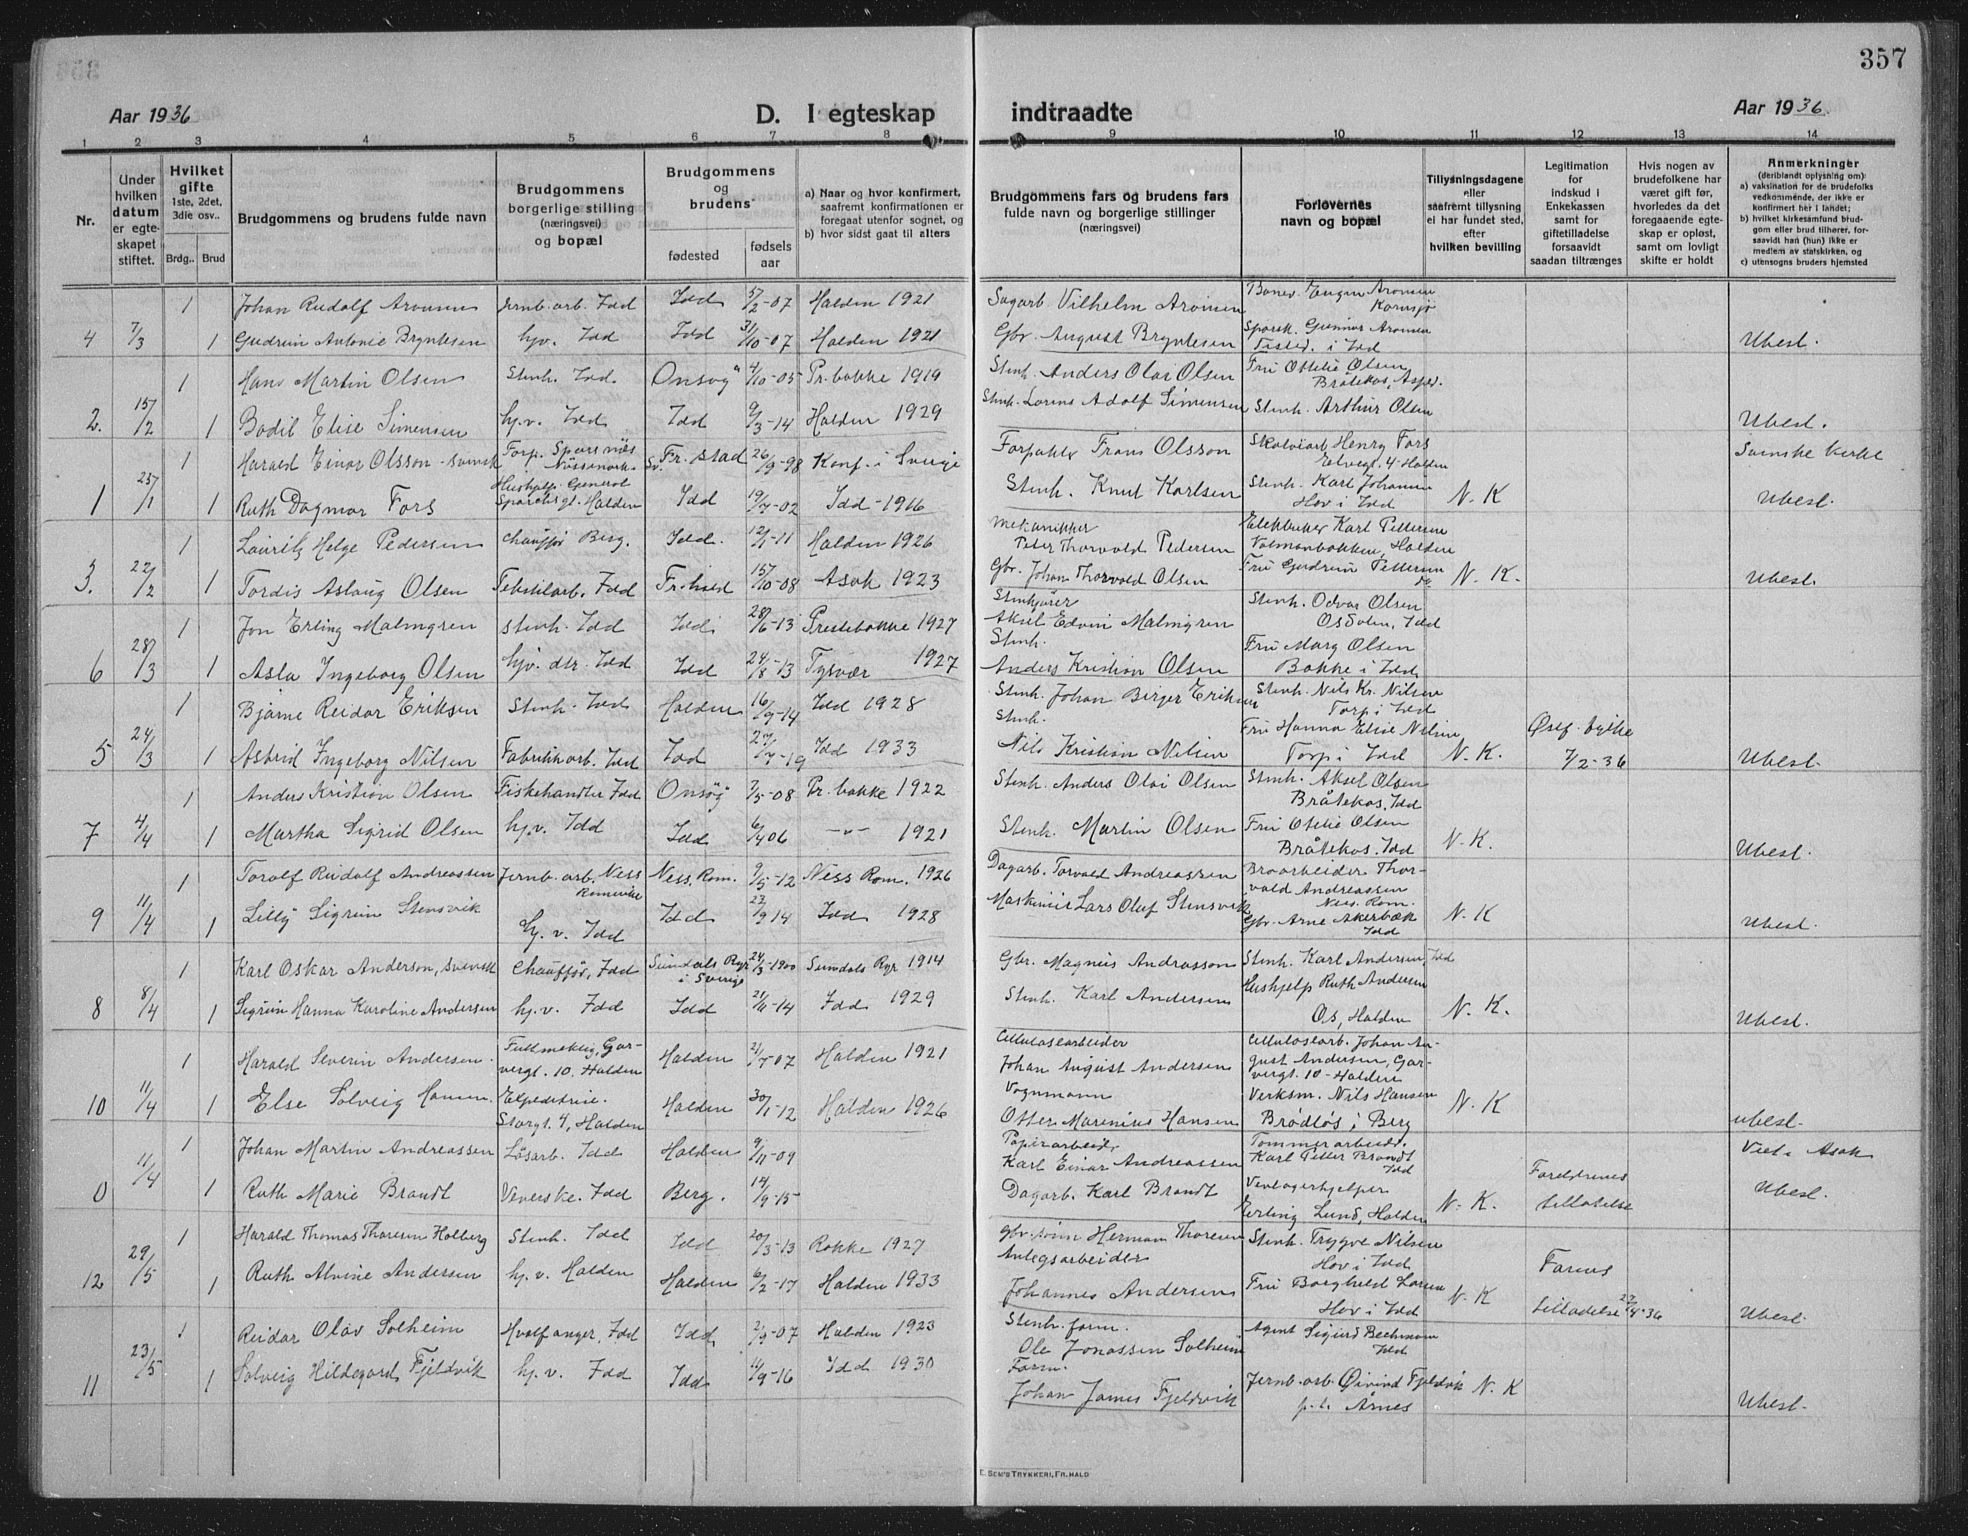 357
Aar 1936
D. I egteskap indtraadte
Aar 1936
1 2 3 4 5 6 7 8 9 10 11 12 13 14
Nr.
Under hvilken datum er egteskapet stiftet.
Hvilket gifte 1ste, 2det, 3die osv..
Brdg.. Brud
Brudgommens og brudens fulde navn
Brudgommens borgerlige stilling (næringsvei) og bopæl
Brudgommens og brudens
fødested
fødselsaar
a) Naar og hvor konfirmert, saafremt konfirmationen er foregaat utenfor sognet, og
b) hvor sidst gaat til alters
Brudgommens fars og brudens fars fulde navn og borgerlige stillinger (næringsvei)
Forlovernes navn og bopæl
Tillysningsdagene eller saafremt tillysning ei har fundet sted, efter hvilken bevilling
Legitimation for indskud i Enkekassen samt for giftetilladelse forsaavidt saadan tiltrænges
Hvis nogen av brudefolkene har været gift før, hvorledes da det foregaaende egteskap er opløst, samt om lovligt skifte er holdt
Anmerkninger (deriblandt oplysning om):
a) vaksination for de brudefolks vedkommende, der ikke er konfirmert her i landet;
b) hvilket kirkesamfund brudgom eller brud tilhører, forsaavidt han (hun) ikke er medlem av statskirken, og
c) utensogns bruders hjemsted
1 Johan Rudolf Aronsen Jernb. arb. Idd Idd 5/2-07 Halden 1921 Sagarb. Vilhelm Aronsen Banev. Eugen Aronsen Kornsjø
4 7/3 1 Gudrun Antonie Bryntesen hjv. Idd Idd 31/10-07 Halden 1921 Gbr. August Bryntesen Gunnar Aronsen Tisted. i Idd Ubesl.
1 Hans Martin Olsen Stenh. Idd. Onsøy 4/10-05 Pr. bakke 1919 Stenh. Anders Olai Olsen Fru Ottelie Olsen Bråtekas, Asper.
2. 15/2 1 Bodil Elise Simensen hj.v. Idd Idd 9/3-14 Halden 1929 Stenh. Lorens Adolf Simensen Stenh. Arthur Olsen Ubesl.
1 Harald Einar Olsson - svensk Torp. Fr. stad 26/9-98 Konf. i Sverige Forpakter Frans Olsson Henry Fors 4 Halden Svenske kirke
1 25/1 1 Ruth Dagmar Fors Hushjelp. Halden Idd 19/7-02 Idd - 1916 Stenh. Knut Karlsen Stenh. Karl Johansen Hov i Idd N. K Ubesl.
1 Lauritz Helge Pedersen Chauffør Berg. Idd. 12/1-11 Halden 1926 Mekanikker Peter Thorvald Pedersen Karl Pettersen Halden
3. 22/2 1 Tordis Aslaug Olsen Tekstilarb. Idd Fr.hald 15/10-08 Asak 1923 Gbr. Johan Thorvald Olsen Fru Gudrun Pettersen do N. K. Ubesl.
1 Jon Erling Malmgren Stenh. Idd Idd 28/6-13 Prestebakke 1927 Stenkjører Aksel Edvin Malmgren Stenh. Odvar Olsen Idd
6 28/3 1 Asla Ingeborg Olsen hjv. dtr. Idd Idd 24/8-13 Tysvær 1927 Stenh. Anders Kristian Olsen Fru Marg Olsen Bakke i Idd
1 Bjarne Reidar Eriksen Stenh. Idd Halden 16/9-14 Idd 1928 Stenh. Johan Birger Eriksen Stenh. Nils Kr. Nilsen Torp i Idd
5 24/3 1 Astrid Ingeborg Nilsen Fabrikkarb. Idd Idd 27/7-19 Idd 1933 Stenh. Nils Kristian Nilsen Fru Hanna Elise Nilsen Torp i Idd N. K. Østf. fylke 7/2-36 Ubesl.
1 Anders Kristian Olsen Fiskehandler Idd Onsøy 7/5-08 Pr. bakke 1922 Stenh. Anders Olai Olsen Stenh. Aksel Olsen Bråtekas, Idd
7 4/4 1 Martha Sigrid Olsen hj.v. Idd Idd 6/4 06 -"- 1921 Stenh. Martin Olsen Fru Otelie Olsen Bråtekas. Idd N. K. Ubesl.
1 Toralf Rudolf Andreassen Jernb. arb. Ness Romerike Ness, Rom. 9/5-12 Ness Rom. 1926 Dagarb. Torvald Andreassen Broarbeider Thorvald Andreassen Ness. Rom.
9 11/4 1 Lilly Sigrun Stensvik hj. v. Idd Idd 22/9 14 Idd 1928 Maskinist Lars Oluf Stensvik Gbr. Arne Akerbæk Idd N. K Ubesl.
1 Karl Oskar Anderson, svensk Chauffør, Idd Sundals Ryr i Sverige 24/3-1900 Sundals Ryr 1914 Gbr. Magnus Andreasson Stenh. Karl Andersen, Idd
8 8/4 1 Sigrun Hanna Karoline Andersen hj. v. Idd Idd 21/6-14 Idd 1929 Stenh. Karl Andersen Hushjelp Ruth Andersen Os, Halden N. K. Ubesl.
1 Harald Severin Andersen Fullmektig, Garvergt. 10. Halden Halden 21/7-07 Halden 1921 Cellulosearbeider Johan August Andersen Cellulosearb. Johan August Andersen, Garvergt. 10 - Halden
10 11/4 1 Else Solveig Hansen Expeditrise. Storgt. 4, Halden Halden 30/1-12 Halden 1926 Vognmann Otter Marenius Hansen Verksm. Nils Hansen Brødløs i Berg N. K ubesl.
1 Johan Martin Andreassen Løsarb. Idd Halden 9/11-09 Papirarbeid. Karl Einar Andreassen Tømmerarbeidr. Karl Petter Brandt Idd Viet i Asak
0 11/4 1 Ruth Marie Brandt Veverske. Idd Berg. 14/9-15 Dagarb. Karl Brandt Erling Lund, Halden N. K. Foreldrenes tillatelse Ubesl.
1 Harald Thomas Thoresen Holberg Stenh. Idd Idd 20/3-13 Rokke 1927 gbr. sønn Herman Thoresen Stenh. Trygve Nilsen Hov i Idd
12 29/5 1 Ruth Alvine Andersen hj. v. Halden Halden 6/2-17 Halden 1933 Anlegsarbeider Johannes Andersen Fru Borghild Larsen Hov i Idd N. K Farens tilladelse 27/4-36 Ubesl.
1 Reidar Olav Solheim Hvalfanger, Idd Idd 2/9-07 Halden 1923 Stenh. form. Ole Jonassen Solheim Agent Sigurd Bechmann Idd
11 23/5 1 Solveig Hildegard Fjeldvik hj. v. Idd Idd 11/9-16 Idd 1930 Form. Johan James Fjeldvik Jernb. arb. Øivind Fjeldvik p.t. Årnes N. K Ubesl.
E. SEM'S TRYKKERI, FR. HALD